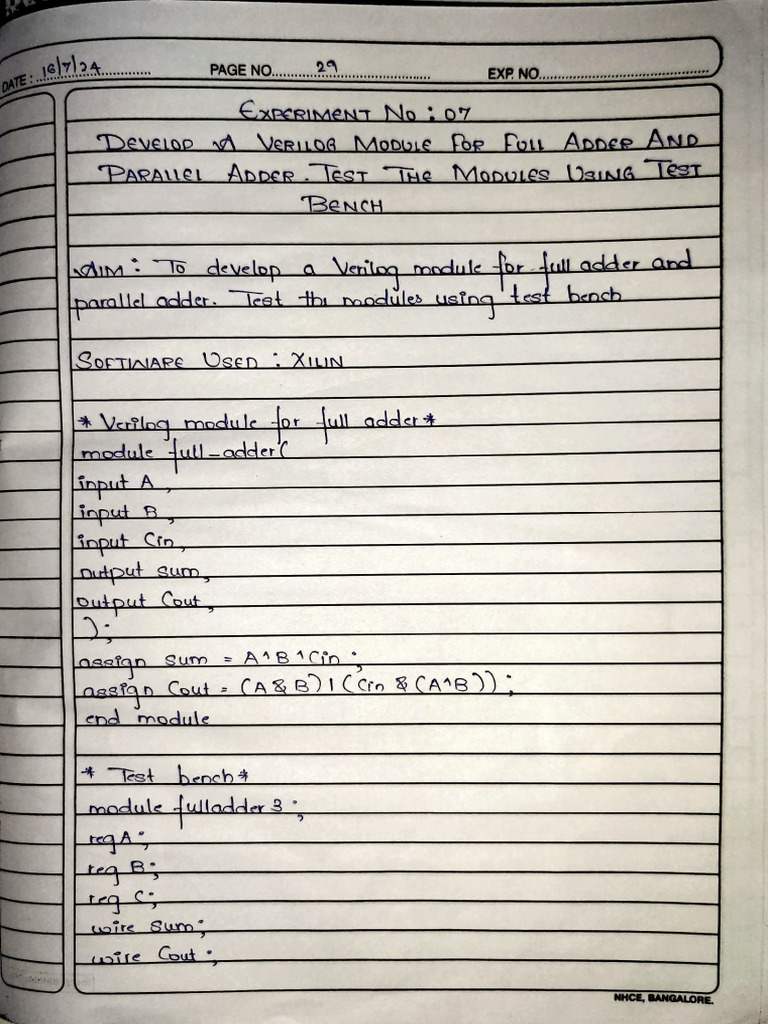 DATE: 16/7/24 PAGE NO. 29 EXP. NO.
EXPERIMENT NO : 07
DEVELOP A VERILOG MODULE FOR FULL ADDER AND
PARALLEL ADDER. TEST THE MODULES USING TEST
BENCH
AIM : To develop a Verilog module for full adder and
parallel adder. Test the modules using test bench
SOFTWARE USED : XILIN
* Verilog module for full adder*
module full-adder(
input A,
input B,
input Cin,
output sum,
output Cout,
);
assign sum = A^B^Cin;
assign Cout = (A & B) | (Cin & (A^B));
end module
* Test bench*
module fulladder3;
reg A;
reg B;
reg C;
wire sum;
wire Cout;
NHCE, BANGALORE.